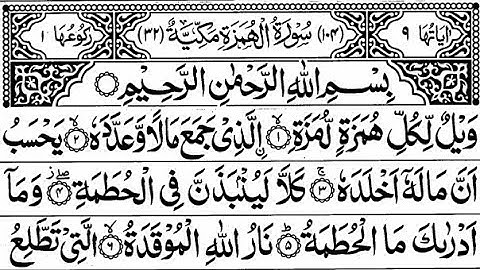 اٰیَاتُهَا ٩ (١٠٤) سُوْرَةُ الْهُمَزَةِ مَكِّیَّةٌ (٣٢) رُكُوْعُهَا ١
بِسْمِ اللّٰهِ الرَّحْمٰنِ الرَّحِیْمِ
وَیْلٌ لِّكُلِّ هُمَزَةٍ لُّمَزَةِ ۙ﴿١﴾ الَّذِیْ جَمَعَ مَالًا وَّعَدَّدَهٗ ۙ﴿٢﴾ یَحْسَبُ
اَنَّ مَالَهٗۤ اَخْلَدَهٗ ۚ﴿٣﴾ كَلَّا لَیُنْۢبَذَنَّ فِی الْحُطَمَةِ ۖ﴿٤﴾ وَمَاۤ
اَدْرٰىكَ مَا الْحُطَمَةُ ؕ﴿٥﴾ نَارُ اللّٰهِ الْمُوْقَدَةُ ۙ﴿٦﴾ الَّتِیْ تَطَّلِعُ